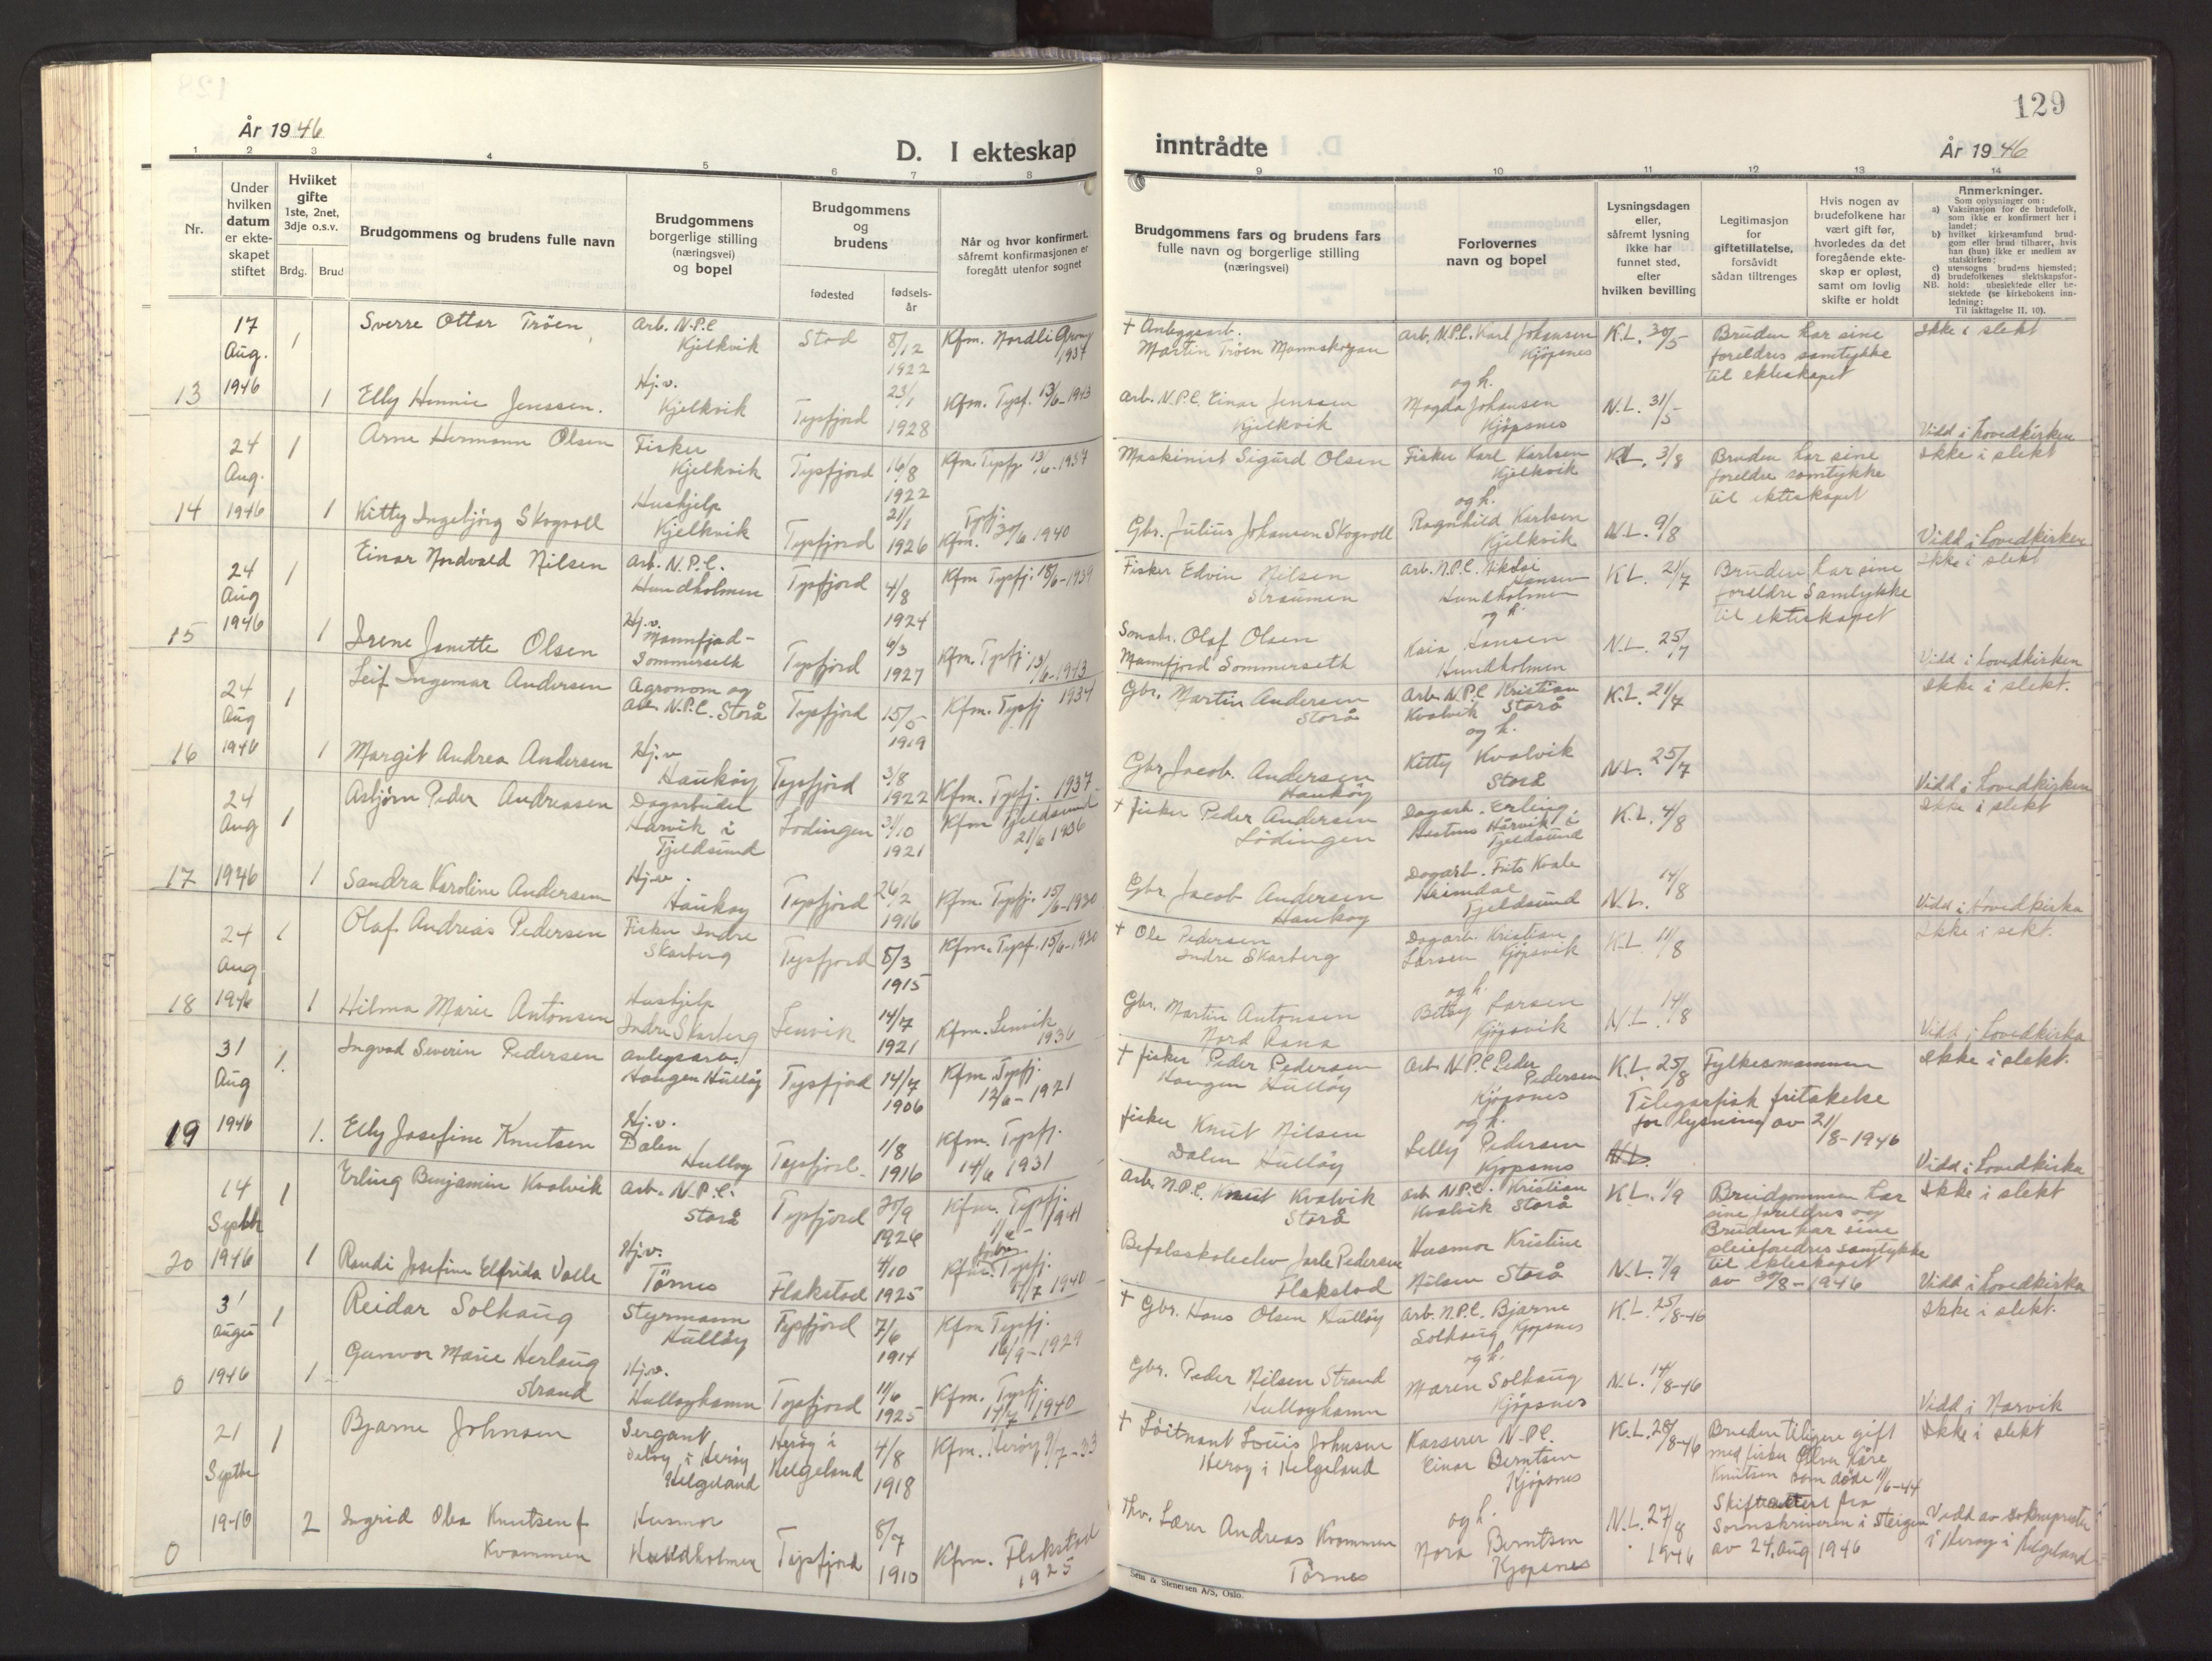 129
År 1946
D. I ekteskap inntrådte
År 1946
1 2 3 4 5 6 7 8 9 10 11 12 13 14
Nr.
Under hvilken datum er ekteskapet stiftet
Hvilket gifte 1ste, 2net, 3dje o.s.v.
Brdg. Brud
Brudgommens og brudens fulle navn
Brudgommens borgerlige stilling (næringsvei) og bopel
Brudgommens og brudens
fødested
fødselsår
Når og hvor konfirmert, såfremt konfirmasjonen er foregått utenfor sognet
Brudgommens fars og brudens fars fulle navn og borgerlige stilling (næringsvei)
Forlovernes navn og bopel
Lysningsdagen eller, såfremt lysning ikke har funnet sted, efter hvilken bevilling
Legitimasjon for giftetillatelse, forsåvidt sådan tiltrenges
Hvis nogen av brudefolkene har vært gift før, hvorledes da det foregående ekteskap er opløst, samt om lovlig skifte er holdt
Anmerkninger.
Som oplysninger om:
a) Vaksinasjon for de brudefolk, som ikke er konfirmert her i landet;
b) hvilket kirkesamfund brudgom eller brud tilhører, hvis han (hun) ikke er medlem av statskirken;
c) utensogns brudens hjemsted;
d) brudefolkenes slektskapsforhold: ubeslektede eller beslektede (se kirkebokens innledning;
NB.
Til iakttagelse II, 10).
13
17 Aug. 1946
1 Sverre Ottar Tröen, Arb. N.P.C Kjelkvik Stod 8/12 1922 Kfm. Nordli Grong 1937
+ Anleggsarb. Martin Tröen
Arb. N.P.C. Karl Johansen Kjöpsnes
K.L. 30/5
Bruden har sine foreldres samtykke til ekteskapet
Ikke i slekt
1 Elly Hennie Jenssen. Hj.v. Kjelkvik Tysfjord 23/1 1928 Kfm. Tysf. 13/6-1943
Arb. N.P.C. Einar Jenssen Kjelkvik
og h. Magda Johansen Kjöpsnes
N.L. 31/5
Vidd i hovedkirken
14
24 Aug. 1946
1 Arne Hermann Olsen Fisker Kjelkvik Tysfjord 16/8 1922 Kfm. Tysfj. 13/6-1937
Maskinist Sigurd Olsen
Fisker Karl Karlsen Kjelkvik
K.L. 3/8
Bruden har sine foreldre samtykke til ekteskapet
Ikke i slekt
1 Kitty Ingebjörg Skogvoll Hushjelp Kjelkvik Tysfjord 21/1 1926 Kfm. Tysfj. 30/6 1940
Gbr. Julius Johansen Skogvoll
og h. Ragnhild Karlsen Kjelkvik
N.L. 9/8
Vidd i hovedkirken
15
24 Aug 1946
1 Einar Nordvald Nilsen Arb. N.P.C. Hundholmen Tysfjord 4/8 1924 Kfm Tysfj. 18/6-1939
Fisker Edvin Nilsen Straumen
Arb. N.P.C. Nikolai Hansen Hundholmen
K.L. 21/7
Bruden har sine foreldre Samtykke til ekteskapet
Ikke i slekt
1 Irene Janette Olsen Hj.v. Mannfjord-Sommerseth Tysfjord 6/3 1927 Kfm. Tysfj. 13/6-1943
Småbr. Olaf Olsen Mannfjord Sommerseth
og h. Kaia Hansen Hundholmen
N.L. 25/7
Vidd i hovedkirken
16
24 Aug 1946
1 Leif Ingemar Andersen Agronom og arb. N.P.C. Storå Tysfjord 15/5 1919 Kfm. Tysfj 1934
Gbr. Martin Andersen Storå
Arb. N.P.C Kristian Kvalvik Storå
K.L. 21/7
Ikke i slekt.
1 Margit Andrea Andersen Hj.v Hauköy Tysfjord 3/8 1922 Kfm. Tysfj. 1937
Gbr Jacob. Andersen Hauköy
og h. Kitty Kvalvik Storå
N.L. 25/7
Vidd i hovedkirken
17
24 Aug 1946
1 Asbjörn Peder Andreassen Dagarbeider Hårvik i Tjeldsund Lödingen 31/10 1921 Kfm Tjeldsund 21/6 1936
+ fisker Peder Andersen Lödingen
Dagarb. Erling Hestnes Hårvik i Tjeldsund
K.L. 4/8
Ikke i slekt
1 Sandra Karoline Andersen Hj.v. Haukøy Tysfjord 26/2 1916 Kfm. Tysfj. 15/6-1930
Gbr. Jacob Andersen Haukoy
Dagarb. Frits Kvale Heimdal Tjeldsund
N.L. 14/8
Vidd i hovedkirka
18
24 Aug 1946
1 Olaf Andreas Pedersen Fisker Indre Skarberg Tysfjord 5/3 1915 Kfm. Tysf. 15/6-1930
+ Ole Pedersen Indre Skarberg
Dagarb. Kristian Larsen Kjöpsvik
K.L. 11/8
Ikke i sekt.
1 Hilma Marie Antonsen Hushjelp Indre Skarberg Lenvik 14/7 1921 Kfm. Lenvik 1936
Gbr. Martin Antonsen Nord Rana
og h. Betsy Larsen Kjöpsvik
N.L. 14/8
Vidd i hovedkirka
19
31 Aug 1946
1. Ingvad Severin Pedersen anlegsarb. Haugen Hullöy Tysfjord 14/7 1906 Kfm Tysfj. 12/6-1921
+ fisker Peder Pedersen Haugen Hullöy
Arb N.P.C Peder Pedersen Kjöpsnes
K.L. 25/8
Fylkesmannen Telegrafisk fritakelse for lysning av 21/8-1946
Ikke i slekt.
1. Elly Josefine Knutsen Hj.v. Dalen Hulloy Tysfjord 1/8 1916 Kfm. Tysfj. 14/6 1931
fisker Knut Nilsen Dalen Hullöy
og h. Lelly Pedersen Kjopsnes
N.L.
Vidd i hovedkirka
20
14 Septbr 1946
1 Erling Benjamin Kvalvik Arb. N.P.C. Storå Tysfjord 20/9 1926 Kfm. Tysfj. 1941
Arb. N.P.C. Knut Kvalvik Storå
Arb N.P.C. Kristian Kvalvik Storå
K.L. 1/9
Brudgommen har sine foreldres og Bruden har sine pleieforedres samtykke til ekteskapet av 30/8-1946
Ikke i slekt
1 Randi Josefine Elfrida Valle Hj.v. Törnes Flakstad 4/10 1925 Kfm. Tysfj. 7/7 1940
Befalsskoleelev Jarle Pedersen Flakstad
Husmor Kristine Nilsen Storå
N.L. 7/9
Vidd i hovedkirka
0
31 August 1946
1 Reidar Solhaug Styrmann Hullöy Tysfjord 7/6 1914 Kfm Tysfj. 16/9-1929
+ Gbr. Hans Olsen Hullöy
Arb. N.P.C. Bjarne Solhaug Kjopsnes
K.L. 25/8-46
Ikke i slekt.
1 Gunvor Marie Herlaug Strand Hj.v. Hulloyhamn Tysfjord 11/6 1925 Kfm. Tysfj. 14/7 1940
Gbr. Peder Nilsen Strand Hulloyhamn
og h. Maren Solhaug Kjöpsnes
N.L. 14/8-46
Vidd i Narvik
0
21 Septbr 1946
1 Bjarne Johnsen Sergant, i Heröy Helgeland Heröy i Helgeland 4/8 1918 Kfm. Heröy 9/7-33
+ Löitnant Louis Johnsen Heroy i Helgeland
Kasserer N.P.C. Einar Berntsen Kjöpsnes
K.L. 28/8-46
Bruden tiligere gift med fisker Ölver Kåre Knutsen som döde 11/6-44
Skifteattest fra Sorenskriveren i Steigen av 24. Aug 1946
Ikke i slekt
2 Ingrid Olea Knutsen f Kvammen Husmor Hundholmen Tysfjord 8/7 1910 Kfm. Flakstad 1925
Thv. Lærer Andreas Kvammen Törnes
og h. Nora Berntsen Kjopsnes
N.L. 27/8 1946
Vidd av sokneprsten i Heröy i Helgeland
Sem & Stenersen A/S, Oslo.